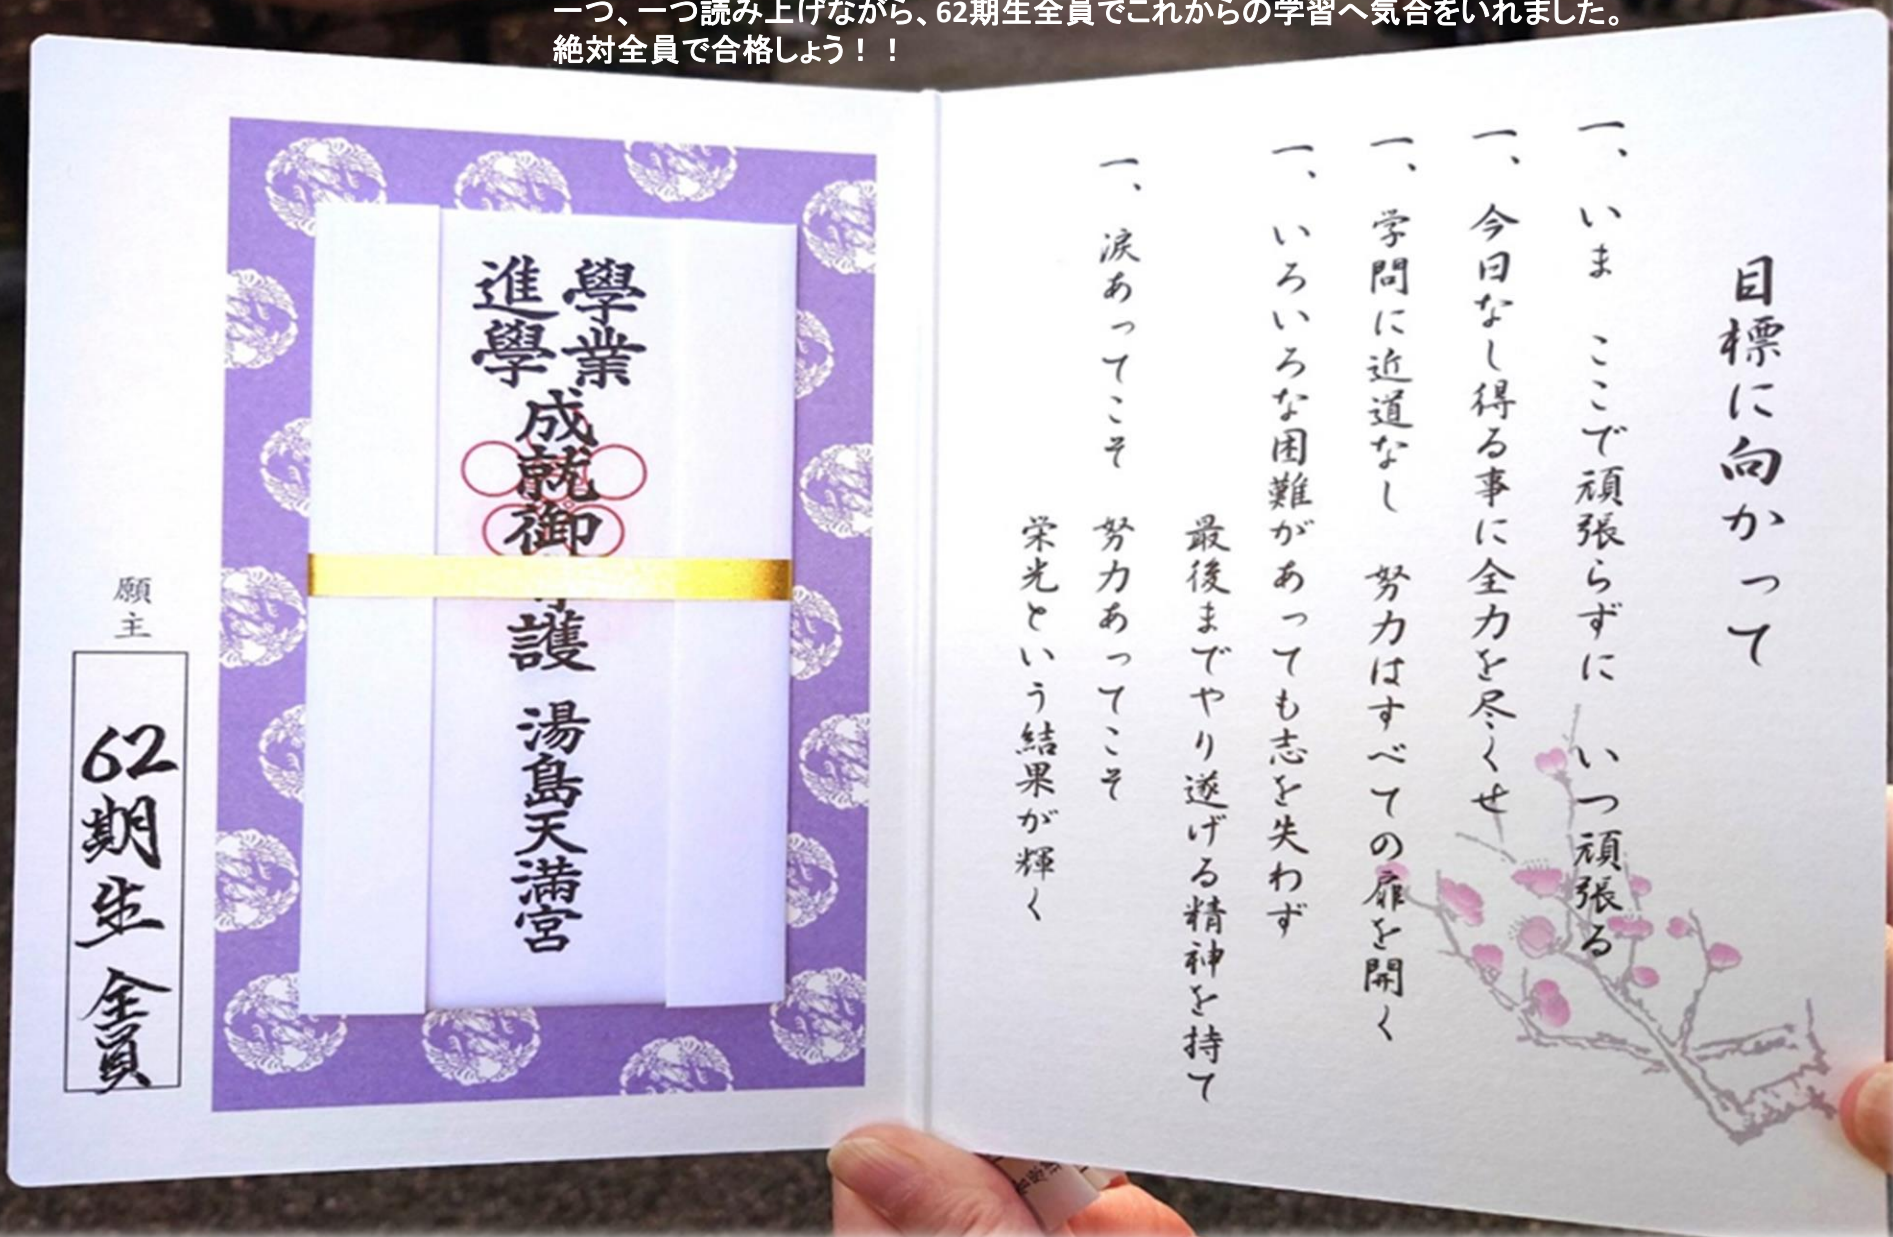 一つ、一つ読み上げながら、62期生全員でこれからの学習へ気合をいれました。
絶対全員で合格しょう！！
目標に向かって
一、いま ここで頑張らずに いつ頑張る
一、今日なし得る事に全力を尽くせ
一、学問に近道なし 努力はすべての扉を開く
一、いろいろな困難があっても志を失わず
最後までやり遂げる精神を持て
一、涙あってこそ 努力あってこそ
栄光という結果が輝く
學業
進學
成就御
護 湯島天満宮
願主
62期生 全員